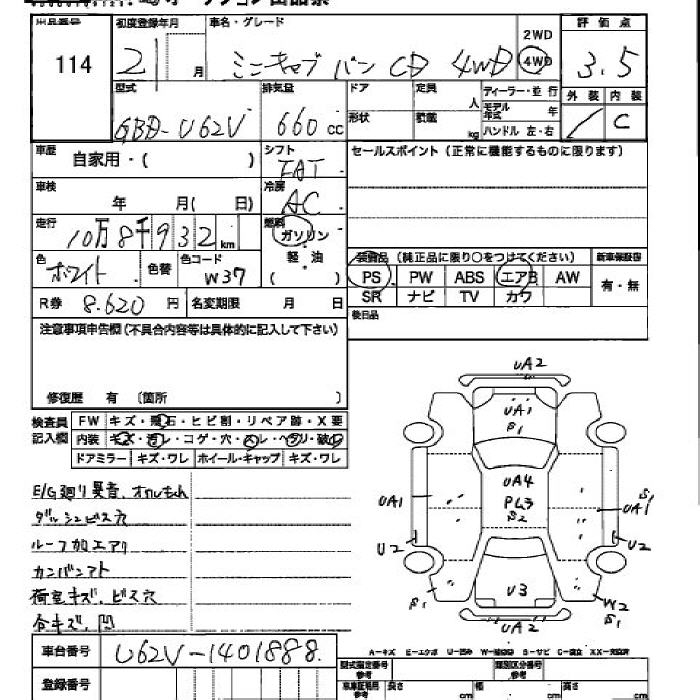 出品番号
114
初度登録年月
2 月
車名・グレード
ミニキャブ バン CD 4WD
2WD
4WD
評価点
3.5
外装 内装
C
型式
GBD-U62V
排気量
660 cc
ドア
形状
定員
人
積載
kg
ディーラー・並行
モデル年式 年
ハンドル 左・右
車歴
自家用・( )
シフト
FAT
セールスポイント(正常に機能するものに限ります)
車検
年 月( 日)
冷房
AC
走行
10万8千932km
燃料
ガソリン
軽油
( )
色
ホワイト
色替
色コード
W37
装備品(純正品に限り○をつけてください)
新車保証書
PS PW ABS エアB AW
SR ナビ TV カワ
有・無
R券 8.620 円
名変期限 月 日
後日品
注意事項申告欄(不具合内容等は具体的に記入して下さい)
修復歴 有 〔箇所 〕
検査員記入欄
FW キズ・飛石・ヒビ割・リペア跡・X要
内装 キズ・汚レ・コゲ・穴・スレ・ヘタリ・破レ
ドアミラー キズ・ワレ ホイール・キャップ キズ・ワレ
E/G廻り異音、オイルもれ
ダッシュビス穴
ルーフ加エアリ
カンバンアト
荷室キズ、ビス穴
各キズ、凹
UA2
UA1
S1
UA4
PL3
S2
UA1
UA1
S1
U2
U2
U3
S1
W2
S1
UA2
A-キズ E-エクボ U-凹み W-補修跡 S-サビ C-腐食 XX-交換済
車台番号
U62V-1401888.
登録番号
型式指定番号
参考
類別区分番号
参考
車庫証明用
参考
長さ
cm
幅
cm
高さ
cm